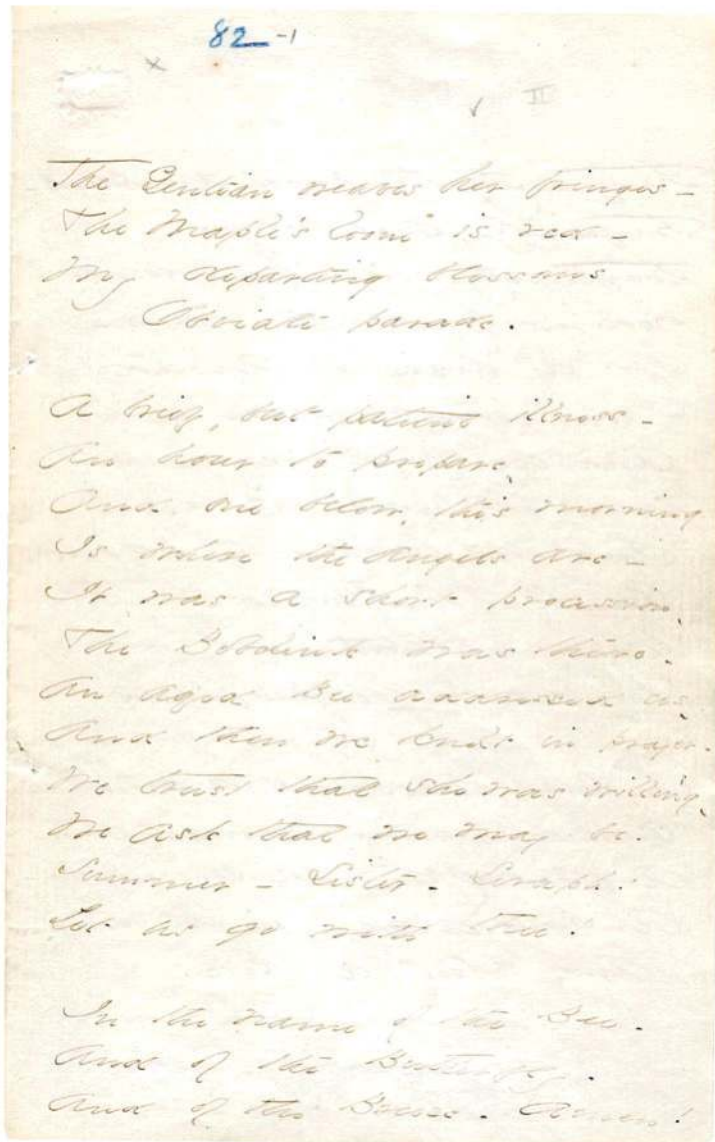 82-1
x
✓ II
The Gentian weaves her fringes -
The Maple's loom is red -
My departing blossoms
Obviate parade.
A brief, but patient illness -
An hour to prepare,
And one below, this morning
Is where the angels are -
It was a short procession,
The Bobolink was there -
An aged Bee addressed us,
And then we knelt in prayer -
We trust that she was willing,
We ask that we may be.
Summer - Sister - Seraph!
Let us go with thee!
In the name of the Bee -
And of the Butterfly -
And of the Breeze - Amen!